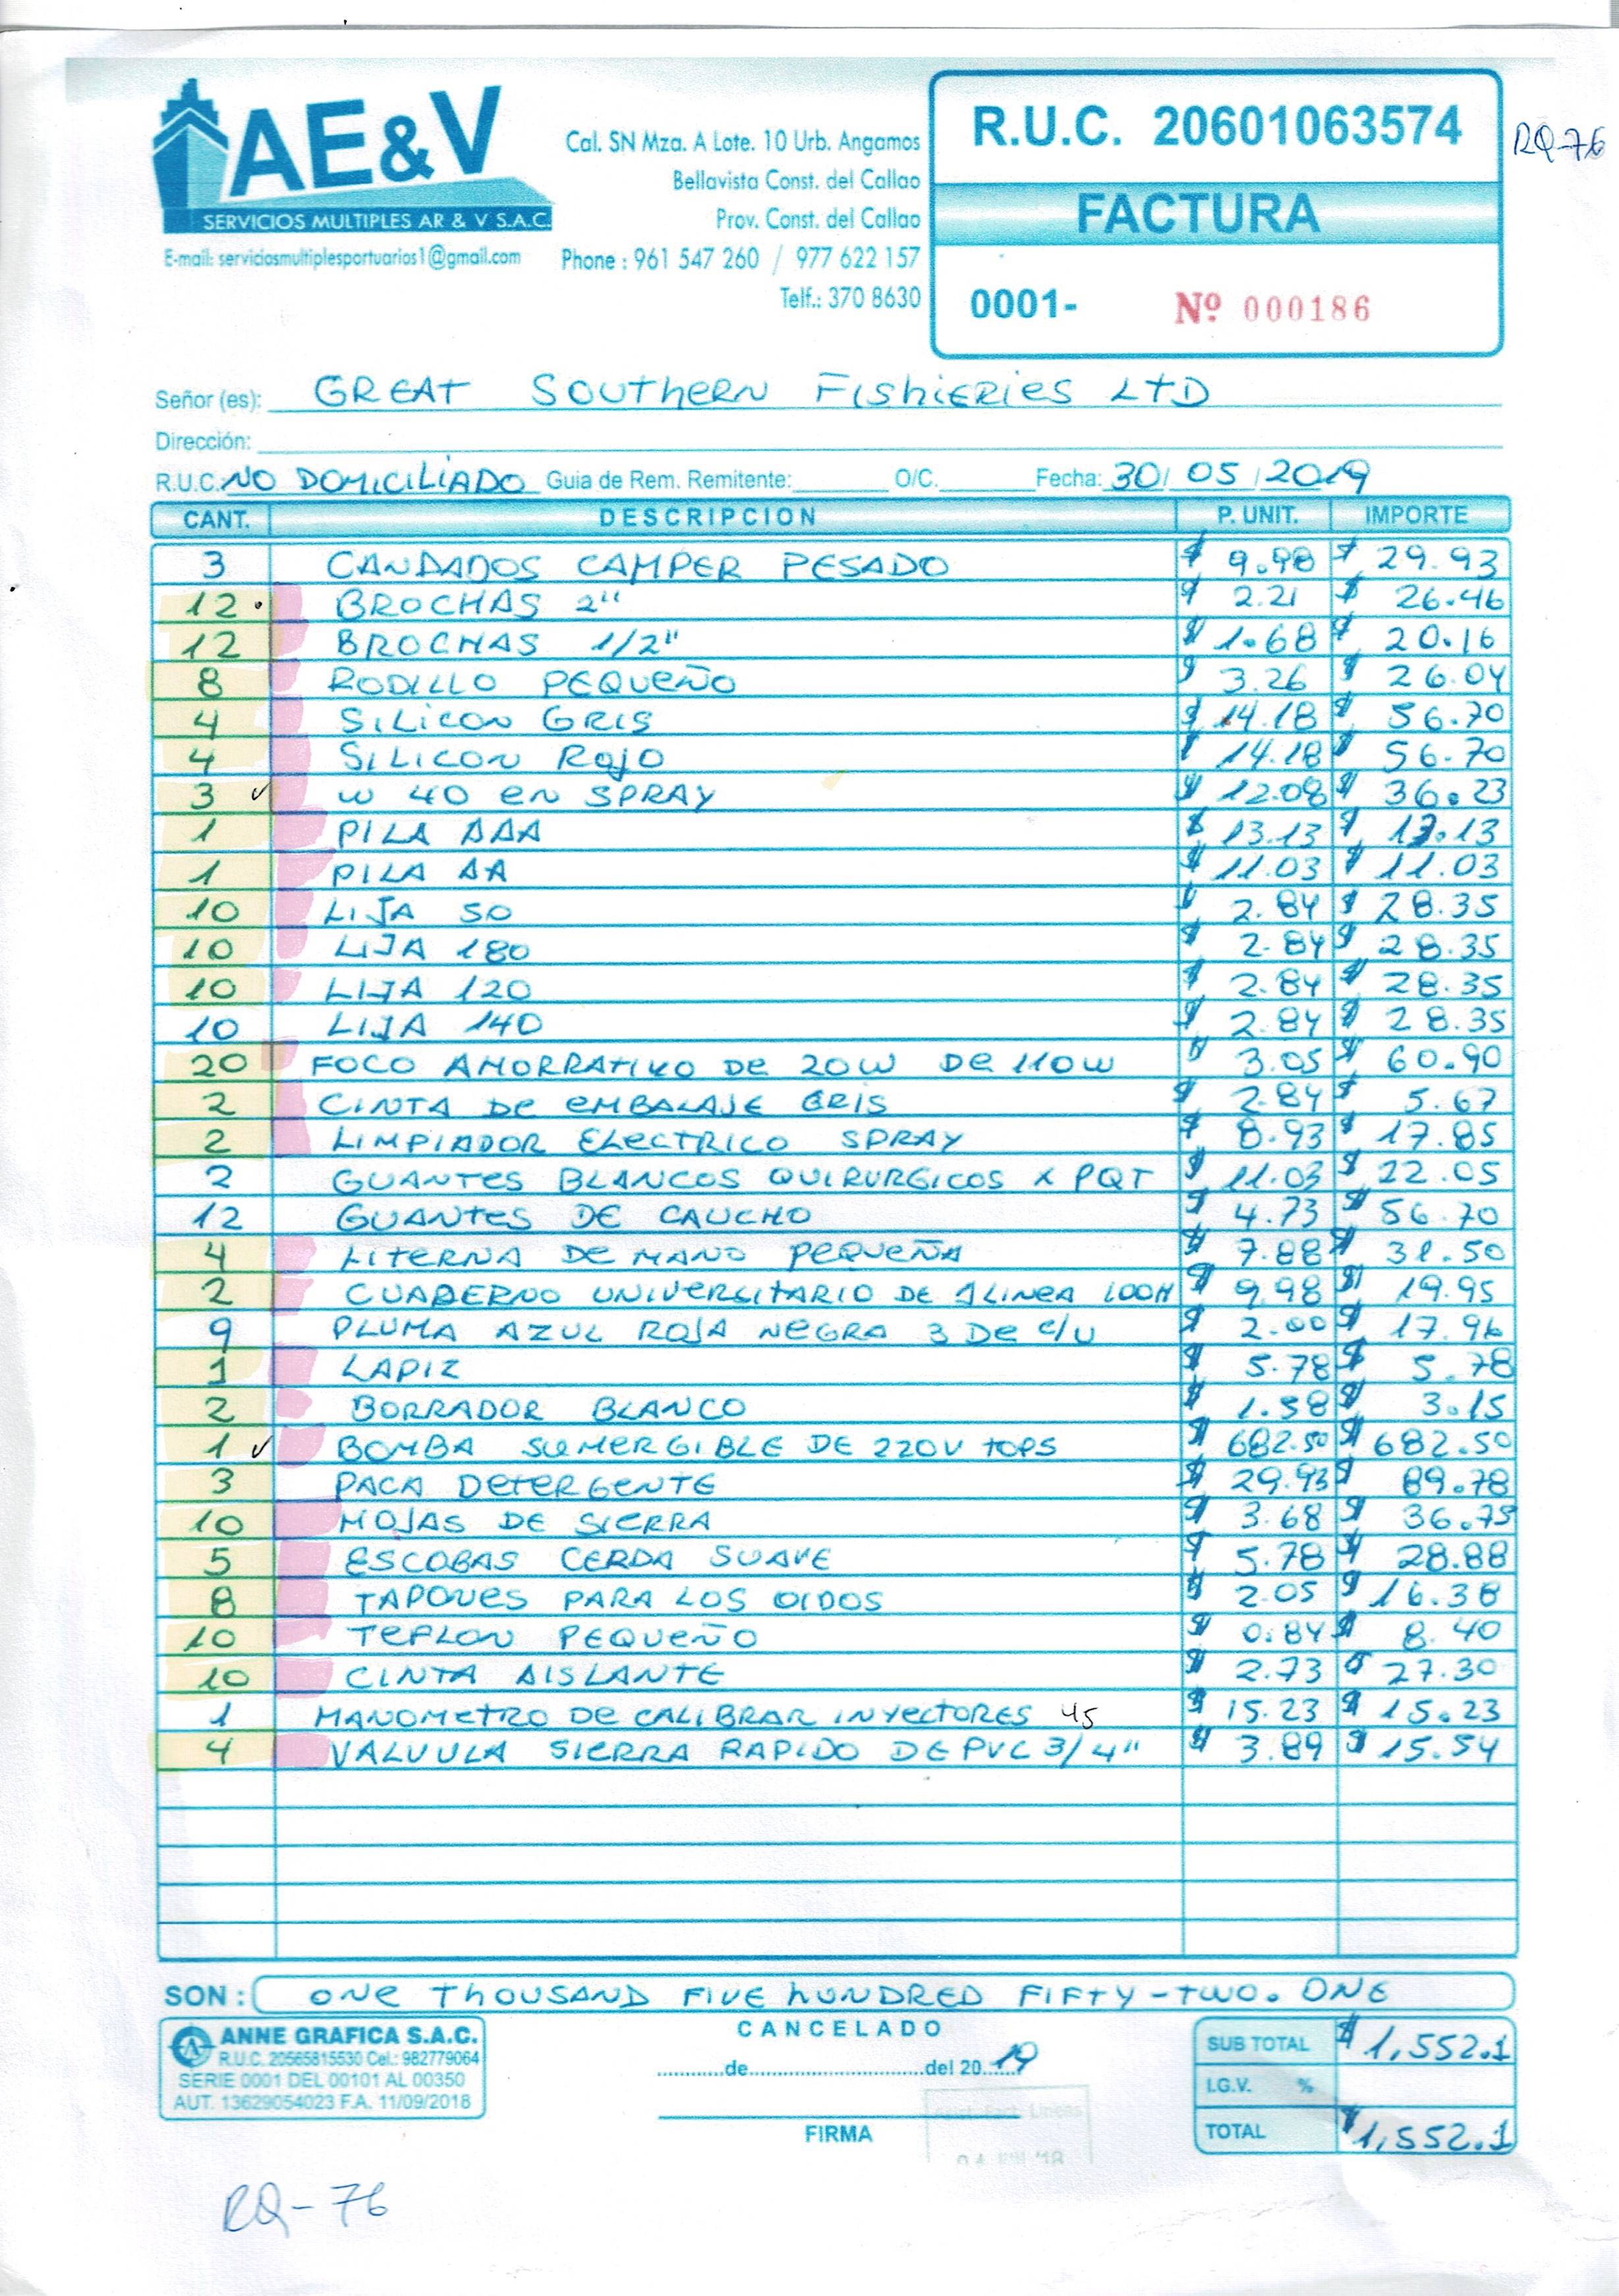 AE&V
SERVICIOS MULTIPLES AR & V S.A.C.
E-mail: serviciosmultiplesportuarios1@gmail.com
Cal. SN Mza. A Lote. 10 Urb. Angamos
Bellavista Const. del Callao
Prov. Const. del Callao
Phone : 961 547 260 / 977 622 157
Telf.: 370 8630
R.U.C. 20601063574
RQ-76
FACTURA
0001- Nº 000186
Señor (es): GREAT SOUTHERN FISHIERIES LTD
Dirección:
R.U.C. NO DOMICILIADO Guia de Rem. Remitente: O/C. Fecha: 30/ 05 /2019
CANT. DESCRIPCION P. UNIT. IMPORTE
3 CANDADOS CAMPER PESADO $ 9.98 $ 29.93
12 BROCHAS 2" $ 2.21 $ 26.46
12 BROCHAS 1/2" $ 1.68 $ 20.16
8 RODILLO PEQUEÑO $ 3.26 $ 26.04
4 SILICON GRIS $ 14.18 $ 56.70
4 SILICON ROJO $ 14.18 $ 56.70
3 ✓ W 40 EN SPRAY $ 12.08 $ 36.23
1 PILA AAA $ 13.13 $ 13.13
1 PILA AA $ 11.03 $ 11.03
10 LIJA 50 $ 2.84 $ 28.35
10 LIJA 180 $ 2.84 $ 28.35
10 LIJA 120 $ 2.84 $ 28.35
10 LIJA 140 $ 2.84 $ 28.35
20 FOCO AHORRATIVO DE 20W DE 110W $ 3.05 $ 60.90
2 CINTA DE EMBALAJE GRIS $ 2.84 $ 5.67
2 LIMPIADOR ELECTRICO SPRAY $ 8.93 $ 17.85
2 GUANTES BLANCOS QUIRURGICOS X PQT $ 11.03 $ 22.05
12 GUANTES DE CAUCHO $ 4.73 $ 56.70
4 LITERNA DE MANO PEQUEÑA $ 7.88 $ 31.50
2 CUADERNO UNIVERSITARIO DE 1 LINEA 100H $ 9.98 $ 19.95
9 PLUMA AZUL ROJA NEGRA 3 DE C/U $ 2.00 $ 17.96
1 LAPIZ $ 5.78 $ 5.78
2 BORRADOR BLANCO $ 1.58 $ 3.15
1 ✓ BOMBA SUMERGIBLE DE 220V TOPS $ 682.50 $ 682.50
3 PACA DETERGENTE $ 29.93 $ 89.78
10 HOJAS DE SIERRA $ 3.68 $ 36.75
5 ESCOBAS CERDA SUAVE $ 5.78 $ 28.88
8 TAPONES PARA LOS OIDOS $ 2.05 $ 16.38
10 TEFLON PEQUEÑO $ 0.84 $ 8.40
10 CINTA AISLANTE $ 2.73 $ 27.30
1 MANOMETRO DE CALIBRAR INYECTORES 45 $ 15.23 $ 15.23
4 VALVULA SIERRA RAPIDO DE PVC 3/4" $ 3.89 $ 15.54
SON : ONE THOUSAND FIVE HUNDRED FIFTY-TWO. ONE
ANNE GRAFICA S.A.C.
R.U.C. 20565815530 Cel.: 982779064
SERIE 0001 DEL 00101 AL 00350
AUT. 13629054023 F.A. 11/09/2018
CANCELADO
de del 20 19
FIRMA
SUB TOTAL $ 1,552.1
I.G.V. %
TOTAL $ 1,552.1
RQ-76